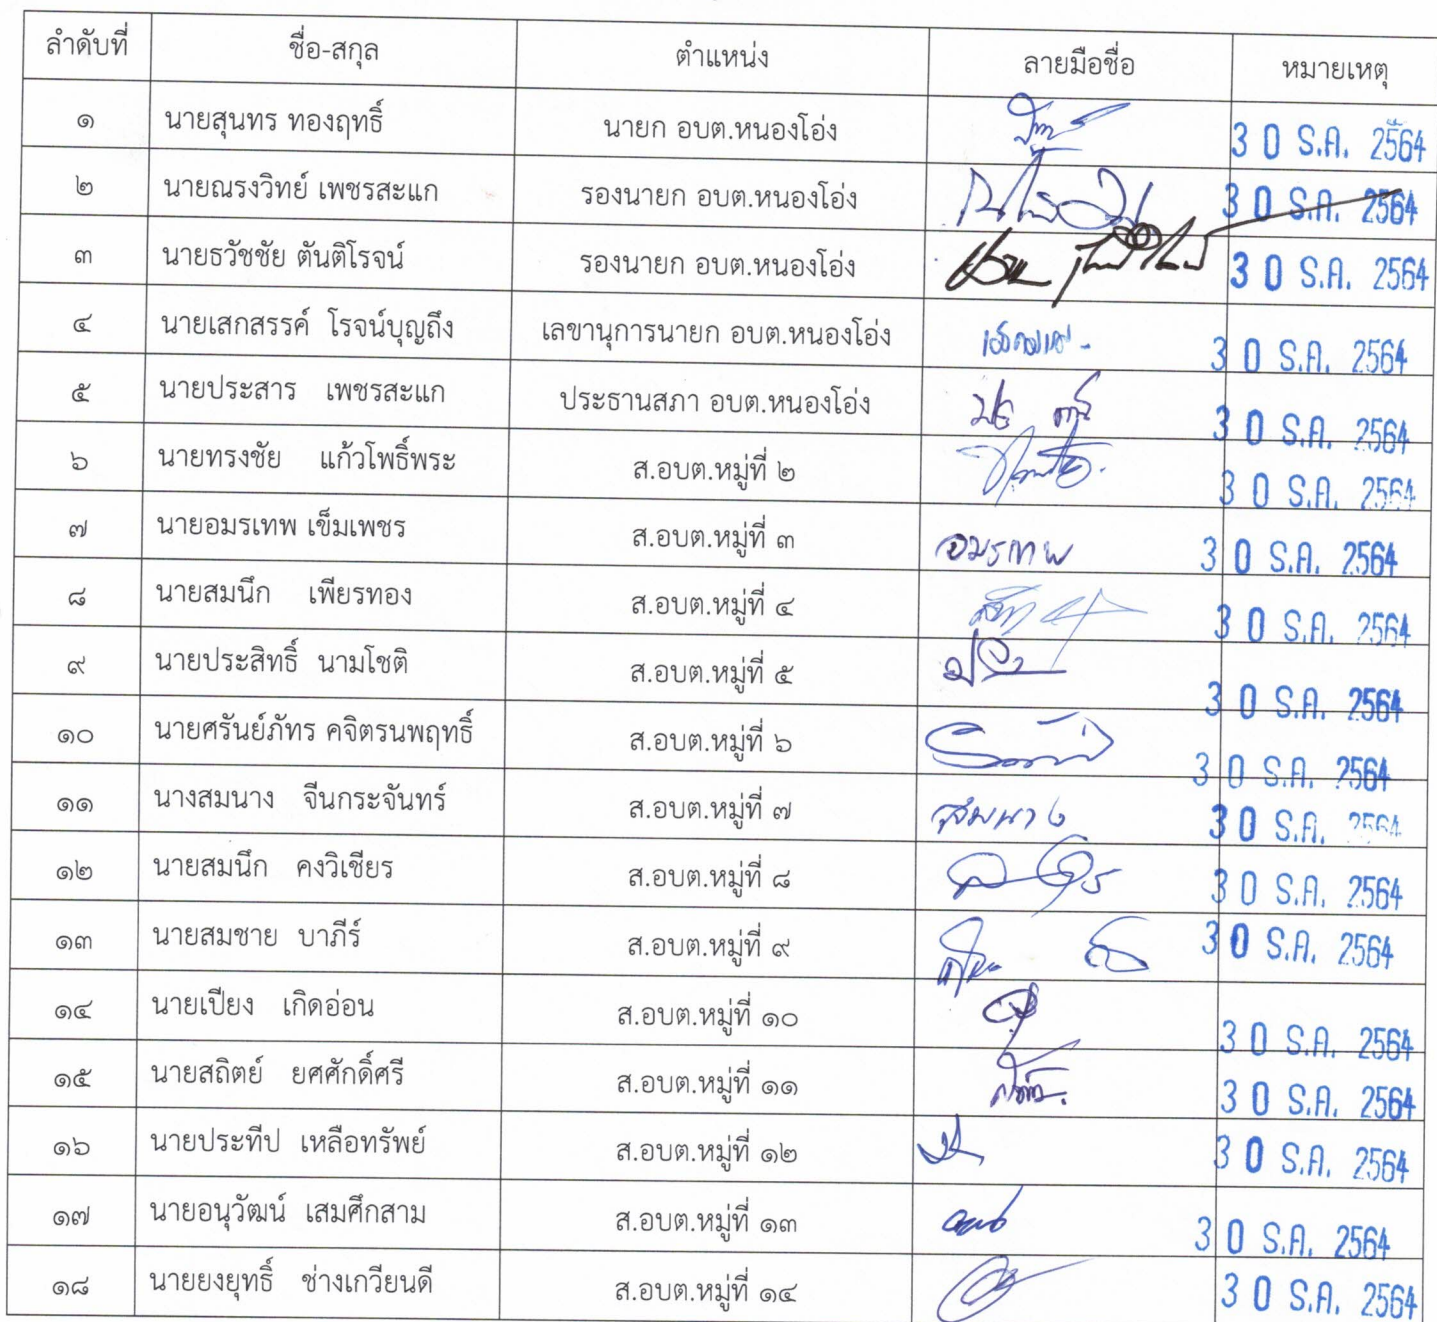 ลำดับที่ ชื่อ-สกุล ตำแหน่ง ลายมือชื่อ หมายเหตุ
๑ นายสุนทร ทองฤทธิ์ นายก อบต.หนองโอ่ง 30 ธ.ค. 2564
๒ นายณรงวิทย์ เพชรสะแก รองนายก อบต.หนองโอ่ง 30 ธ.ค. 2564
๓ นายธวัชชัย ตันติโรจน์ รองนายก อบต.หนองโอ่ง 30 ธ.ค. 2564
๔ นายเสกสรรค์ โรจน์บุญถึง เลขานุการนายก อบต.หนองโอ่ง 30 ธ.ค. 2564
๕ นายประสาร เพชรสะแก ประธานสภา อบต.หนองโอ่ง 30 ธ.ค. 2564
๖ นายทรงชัย แก้วโพธิ์พระ ส.อบต.หมู่ที่ ๒ 30 ธ.ค. 2564
๗ นายอมรเทพ เข็มเพชร ส.อบต.หมู่ที่ ๓ อมรเทพ 30 ธ.ค. 2564
๘ นายสมนึก เพียรทอง ส.อบต.หมู่ที่ ๔ 30 ธ.ค. 2564
๙ นายประสิทธิ์ นามโชติ ส.อบต.หมู่ที่ ๕ 30 ธ.ค. 2564
๑๐ นายศรันย์ภัทร คจิตรนพฤทธิ์ ส.อบต.หมู่ที่ ๖ 30 ธ.ค. 2564
๑๑ นางสมนาง จีนกระจันทร์ ส.อบต.หมู่ที่ ๗ สมนาง 30 ธ.ค. 2564
๑๒ นายสมนึก คงวิเชียร ส.อบต.หมู่ที่ ๘ 30 ธ.ค. 2564
๑๓ นายสมชาย บาภีร์ ส.อบต.หมู่ที่ ๙ 30 ธ.ค. 2564
๑๔ นายเปียง เกิดอ่อน ส.อบต.หมู่ที่ ๑๐ 30 ธ.ค. 2564
๑๕ นายสถิตย์ ยศศักดิ์ศรี ส.อบต.หมู่ที่ ๑๑ 30 ธ.ค. 2564
๑๖ นายประทีป เหลือทรัพย์ ส.อบต.หมู่ที่ ๑๒ 30 ธ.ค. 2564
๑๗ นายอนุวัฒน์ เสมศึกสาม ส.อบต.หมู่ที่ ๑๓ 30 ธ.ค. 2564
๑๘ นายยงยุทธิ์ ช่างเกวียนดี ส.อบต.หมู่ที่ ๑๔ 30 ธ.ค. 2564